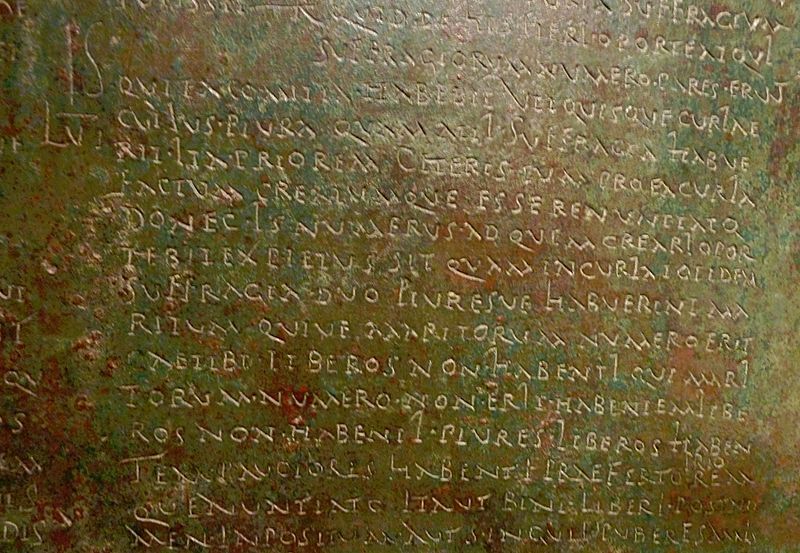 SUFFRAGIUM
R QUID DE HIS FIERI OPORTEAT QUI
SUFFRAGIORUM NUMERO PARES ERUNT
IS QUI EA COMITIA HABEBIT UTI QUISQUE CURIAE
LVI CUIUS PLURA QUAM ALII SUFFRAGIA HABUE
RIT ITA PRIOREM CETERIS EUM PRO EA CURIA
FACTUM CREATUMQUE ESSE RENUNTIATO
DONEC IS NUMERUS AD QUEM CREARI OPOR
TEBIT EXPLETUS SIT QUAM IN CURIA TOTIDEM
SUFFRAGIA DUO PLURESVE HABUERINT MA
RITUM QUIVE MARITORUM NUMERO ERIT
CAELIBI LIBEROS NON HABENTI QUI MARI
TORUM NUMERO NON ERIT HABENTEM LIBE
ROS NON HABENTI PLURES LIBEROS HABEN
TEM PAUCIORES HABENTI PRAEFERTO PRIOREM
QUE NUNTIATO ITA UT BINI LIBERI POST NO
MEN INPOSITUM AUT SINGULI PUBERES AMIS